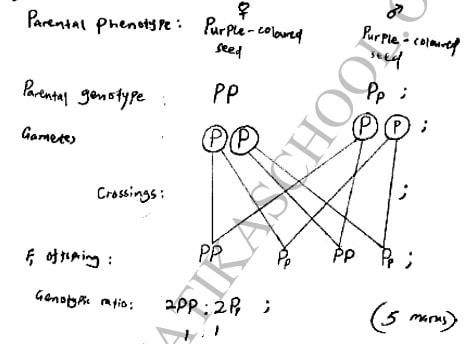 ♀ ♂
Parental phenotype: Purple-coloured seed Purple-coloured seed
Parental genotype: PP Pp ;
Gametes P P P p ;
Crossings: ;
F1 offspring: PP Pp PP Pp ;
Genotypic ratio: 2PP : 2Pp ;
1 : 1
(5 marks)